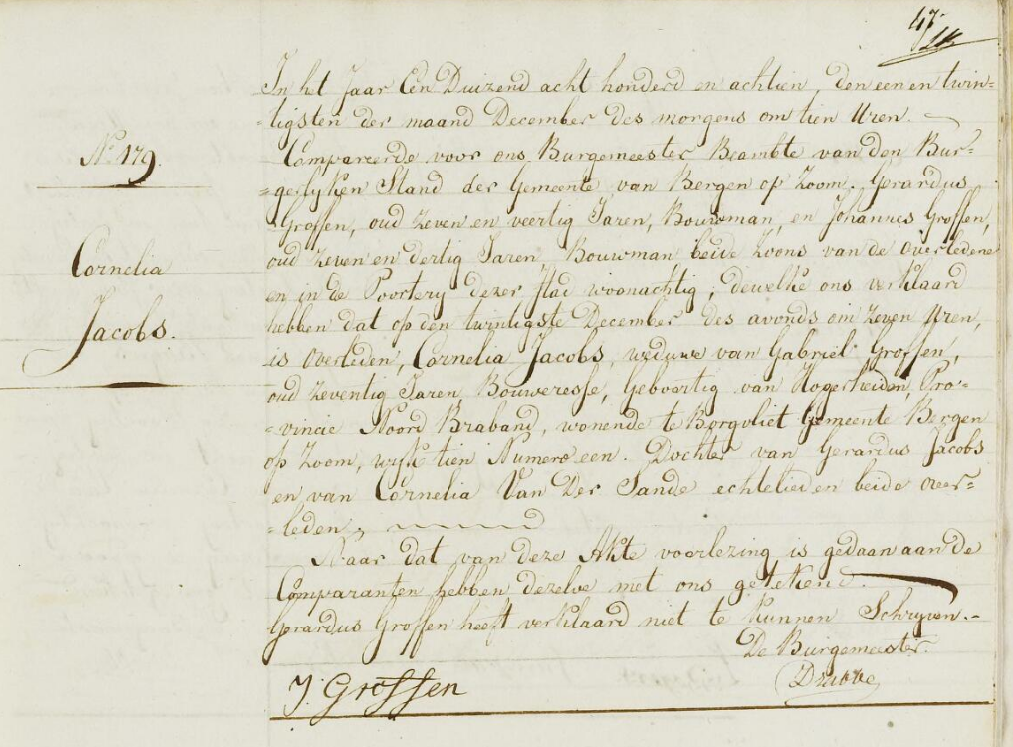 47
N.º 179.
Cornelia
Jacobs.
In het Jaar Een Duizend acht honderd en achtien, den een en twin-
-tigsten der maand December des morgens om tien Uren.
Compareerde voor ons Burgemeester Beambte van den Bur-
-gerlyken Stand der Gemeente van Bergen op Zoom. Gerardus
Groffen, oud zeven en veertig Jaren, Bouwman, en Johannes Groffen,
oud zeven en dertig Jaren Bouwman beide Zoons van de overledene
en in de Poortery dezer Stad woonachtig, dewelke ons verklaard
hebben dat op den twintigste December des avonds om zeven Uren,
is overleden, Cornelia Jacobs, weduwe van Gabriël Groffen,
oud zeventig Jaren Bouweresse, Geboortig van Hogerheiden, Pro-
-vincie Noord Braband, wonende te Borgvliet Gemeente Bergen
op Zoom, wijk tien Numero een. Dochter van Gerardus Jacobs
en van Cornelia Van Der Sande echtelieden beide over-
-leden.
Naar dat van deze Akte voorlezing is gedaan aan de
Comparanten hebben dezelve met ons getekend.
Gerardus Groffen heeft verklaard niet te kunnen Schryven.-
De Burgemeester.
J: Groffen